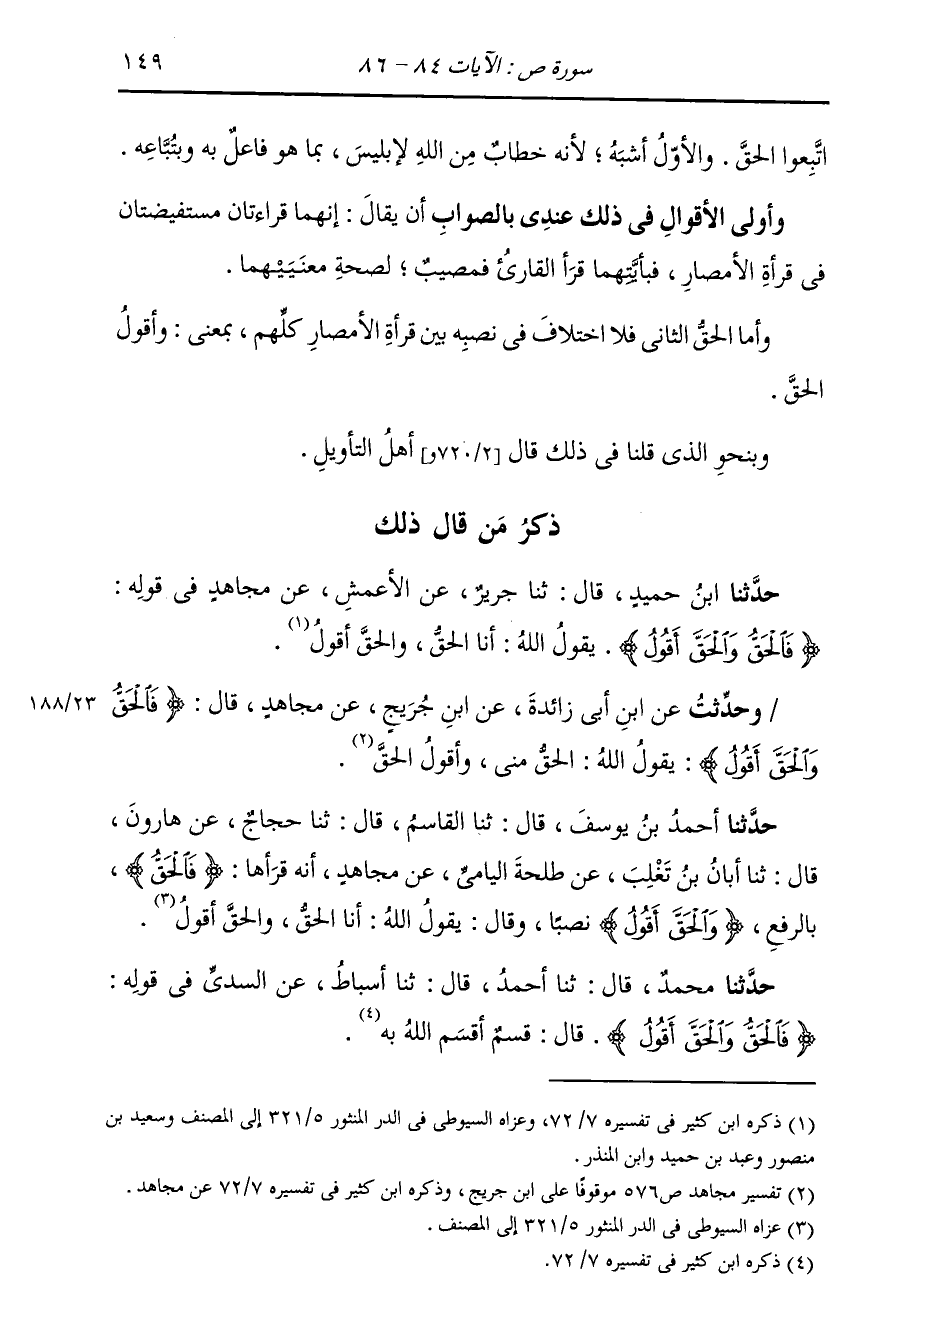 سورة ص : الآيات ٨٤ - ٨٦ ١٤٩
اتَّبِعوا الحقَّ . والأوّلُ أشبَهُ ؛ لأنه خطابٌ مِن اللهِ لإبليسَ ، بما هو فاعلٌ به وبتُبَّاعِه .
وأولى الأقوالِ فى ذلك عندِى بالصوابِ أن يقالَ : إنهما قراءتان مستفيضتان
فى قرأةِ الأمصارِ ، فبأيَّتِهما قرَأ القارئُ فمصيبٌ ؛ لصحةِ معنَيَيْهما .
وأما الحقُّ الثانى فلا اختلافَ فى نصبِه بين قرأةِ الأمصارِ كلِّهم ، بمعنى : وأقولُ
الحقَّ .
وبنحوِ الذى قلنا فى ذلك قال [٧٢٠/٢و] أهلُ التأويلِ .
ذكرُ مَن قال ذلك
حدَّثنا ابنُ حميدٍ ، قال : ثنا جريرٌ ، عن الأعمشِ ، عن مجاهدٍ فى قولِه :
﴿ فَٱلْحَقُّ وَٱلْحَقَّ أَقُولُ ﴾ . يقولُ اللهُ : أنا الحقُّ ، والحقَّ أقولُ(١) .
/ وحدِّثتُ عن ابنِ أبى زائدةَ ، عن ابنِ جُرَيجٍ ، عن مجاهدٍ ، قال : ﴿ فَٱلْحَقُّ ١٨٨/٢٣
وَٱلْحَقَّ أَقُولُ ﴾ : يقولُ اللهُ : الحقُّ منى ، وأقولُ الحقَّ(٢) .
حدَّثنا أحمدُ بنُ يوسفَ ، قال : ثنا القاسمُ ، قال : ثنا حجاجٌ ، عن هارونَ ،
قال : ثنا أبانُ بنُ تَغْلِبَ ، عن طلحةَ الياميِّ ، عن مجاهدٍ ، أنه قرَأها : ﴿ فَٱلْحَقُّ ﴾ ،
بالرفعِ ، ﴿ وَٱلْحَقَّ أَقُولُ ﴾ نصبًا ، وقال : يقولُ اللهُ : أنا الحقُّ ، والحقَّ أقولُ(٣) .
حدَّثنا محمدٌ ، قال : ثنا أحمدُ ، قال : ثنا أسباطُ ، عن السدىِّ فى قولِه :
﴿ فَٱلْحَقُّ وَٱلْحَقَّ أَقُولُ ﴾ . قال : قسمٌ أقسَم اللهُ به(٤) .
(١) ذكره ابن كثير فى تفسيره ٧/ ٧٢، وعزاه السيوطى فى الدر المنثور ٣٢١/٥ إلى المصنف وسعيد بن
منصور وعبد بن حميد وابن المنذر .
(٢) تفسير مجاهد ص٥٧٦ موقوفًا على ابن جريج ، وذكره ابن كثير فى تفسيره ٧٢/٧ عن مجاهد .
(٣) عزاه السيوطى فى الدر المنثور ٣٢١/٥ إلى المصنف .
(٤) ذكره ابن كثير فى تفسيره ٧/ ٧٢.